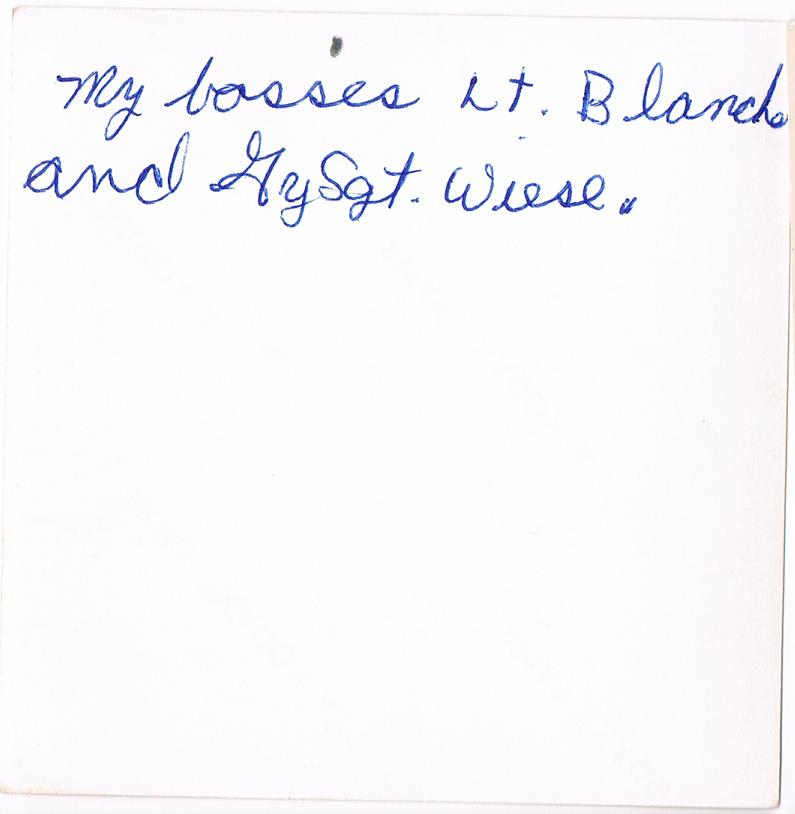 My bosses Lt. Blanche
and GySgt. Wiese.